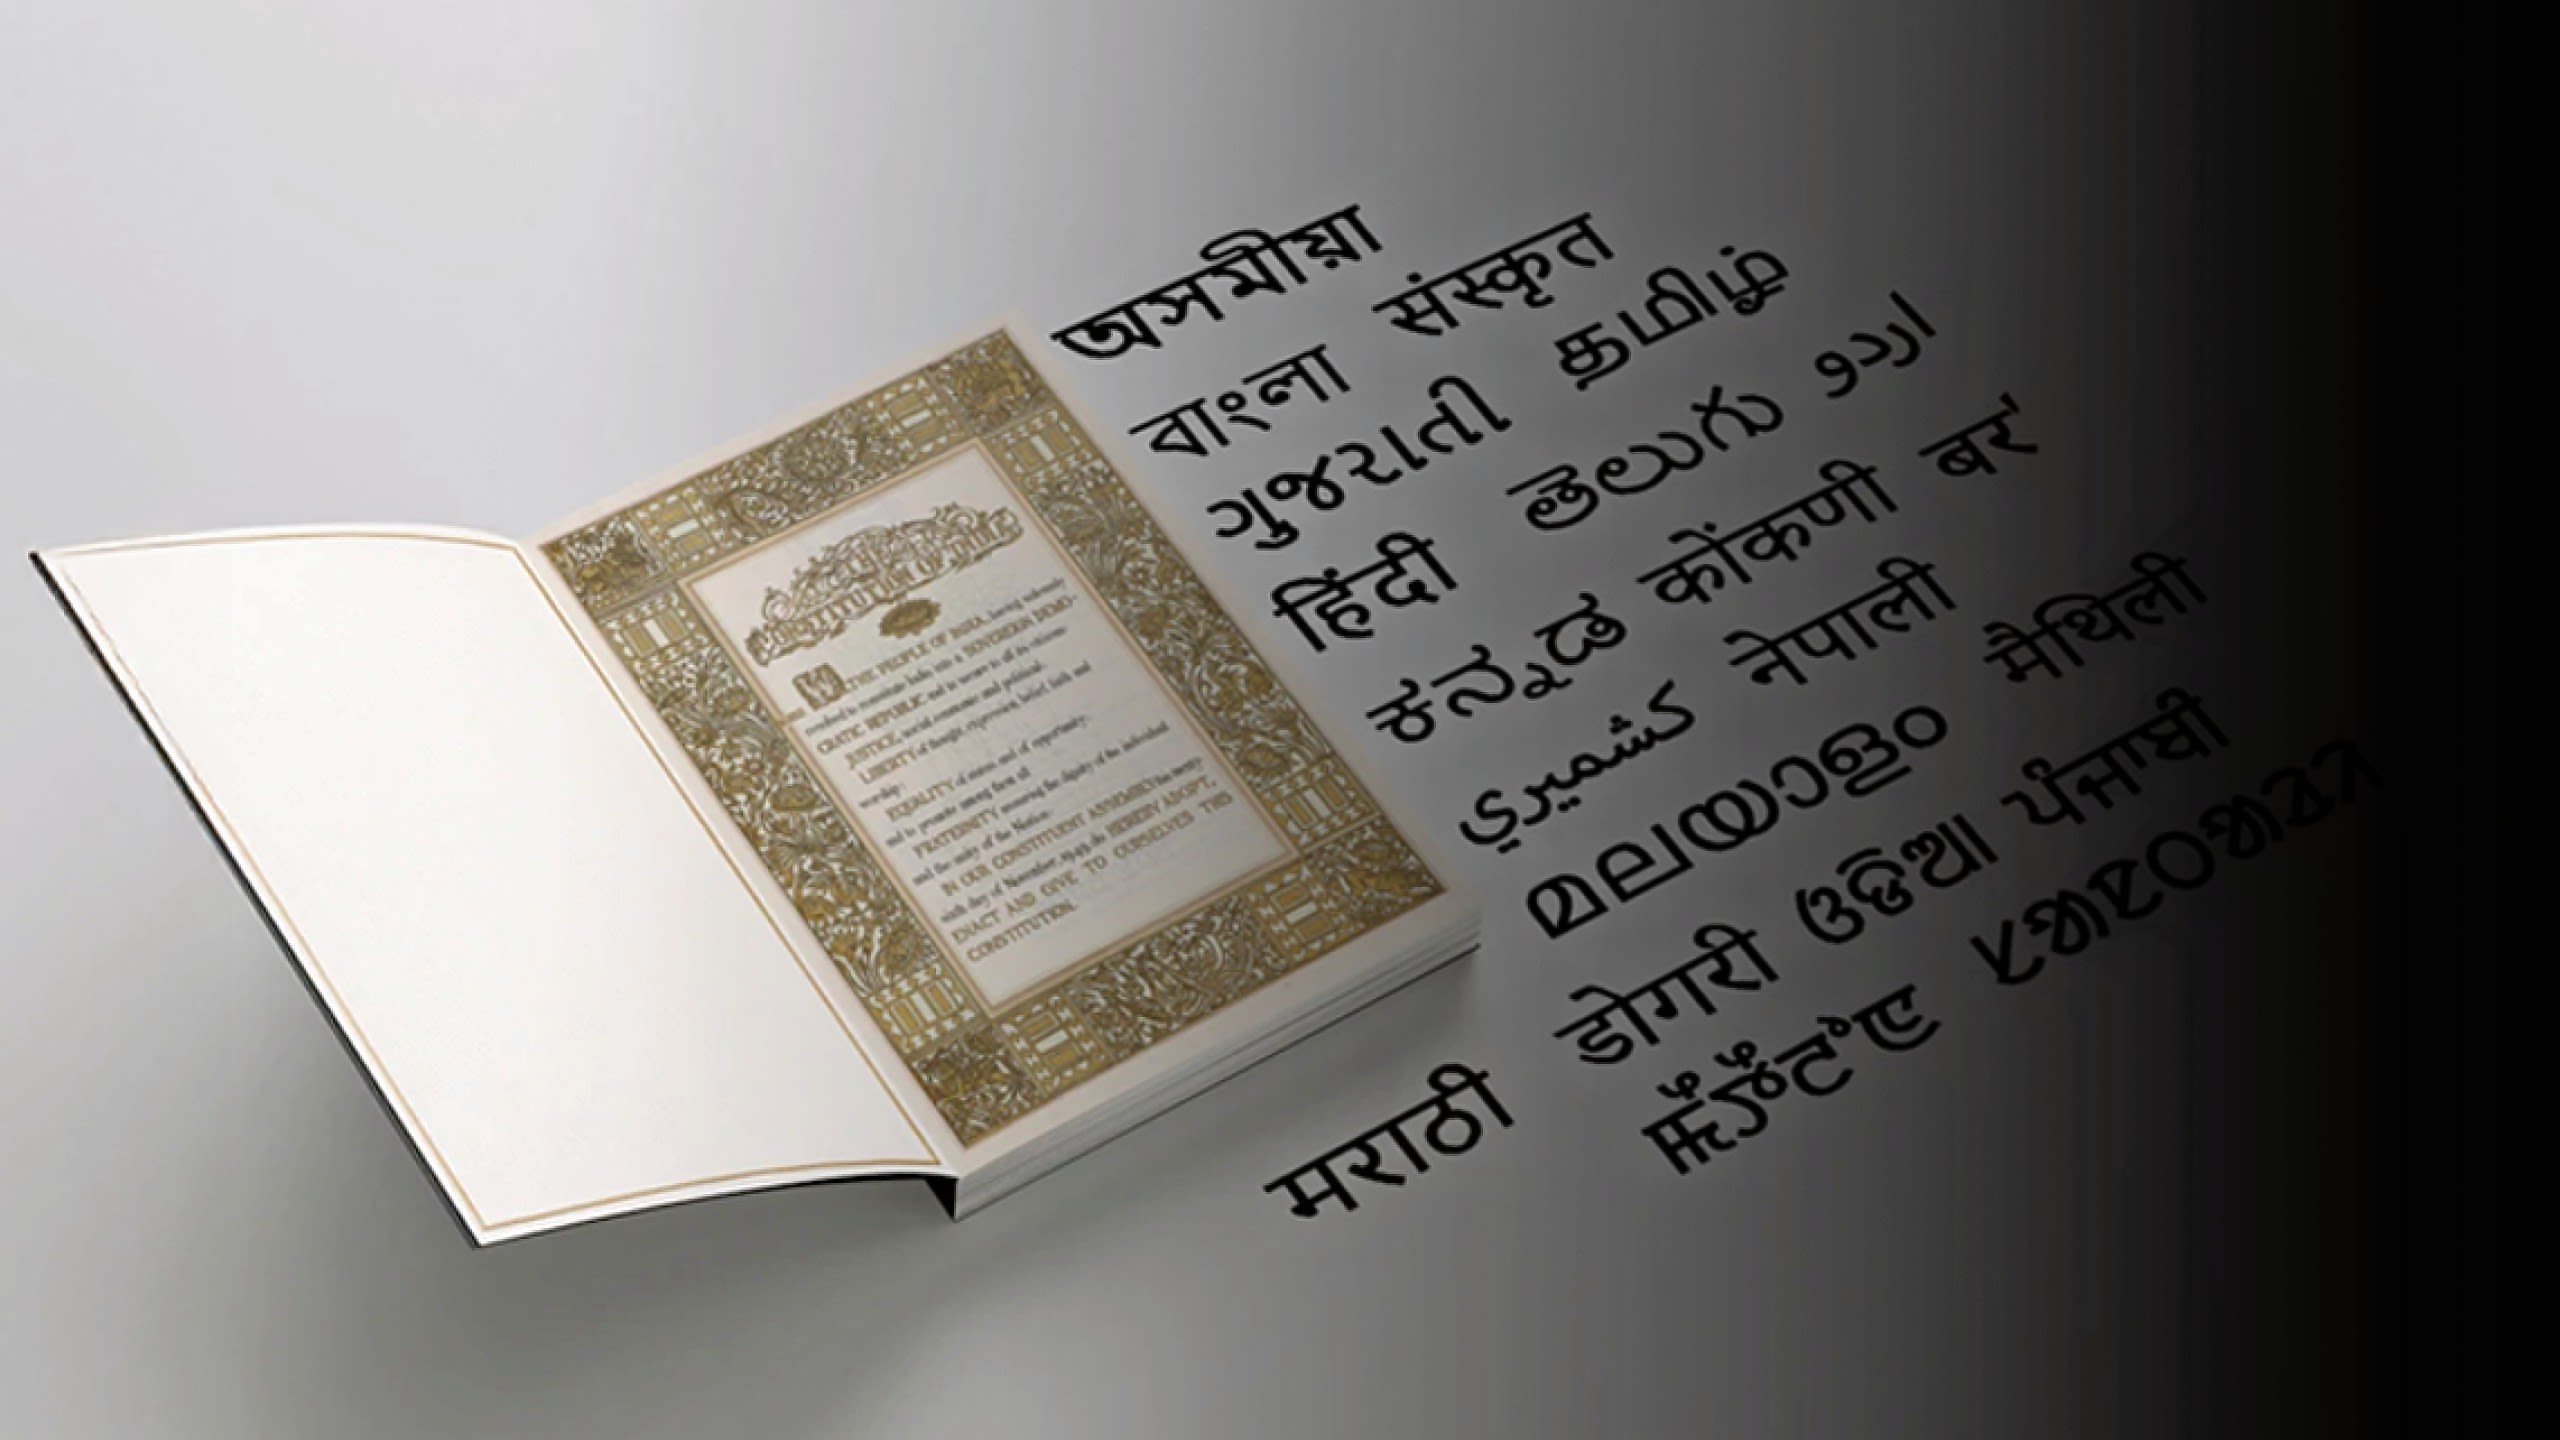 CONSTITUTION OF INDIA
WE, THE PEOPLE OF INDIA, having solemnly
resolved to constitute India into a SOVEREIGN DEMO-
CRATIC REPUBLIC and to secure to all its citizens:
JUSTICE, social, economic and political;
LIBERTY of thought, expression, belief, faith and
worship;
EQUALITY of status and of opportunity;
and to promote among them all
FRATERNITY assuring the dignity of the individual
and the unity of the Nation;
IN OUR CONSTITUENT ASSEMBLY this twenty-
sixth day of November, 1949, do HEREBY ADOPT,
ENACT AND GIVE TO OURSELVES THIS
CONSTITUTION.
অসমীয়া
বাংলা संस्कृत
ગુજરાતી தமிழ்
हिंदी తెలుగు اردو
ಕನ್ನಡ कोंकणी बर'
کشمیري नेपाली
മലയാളം मैथिली
डोगरी ଓଡିଆ ਪੰਜਾਬੀ
मराठी